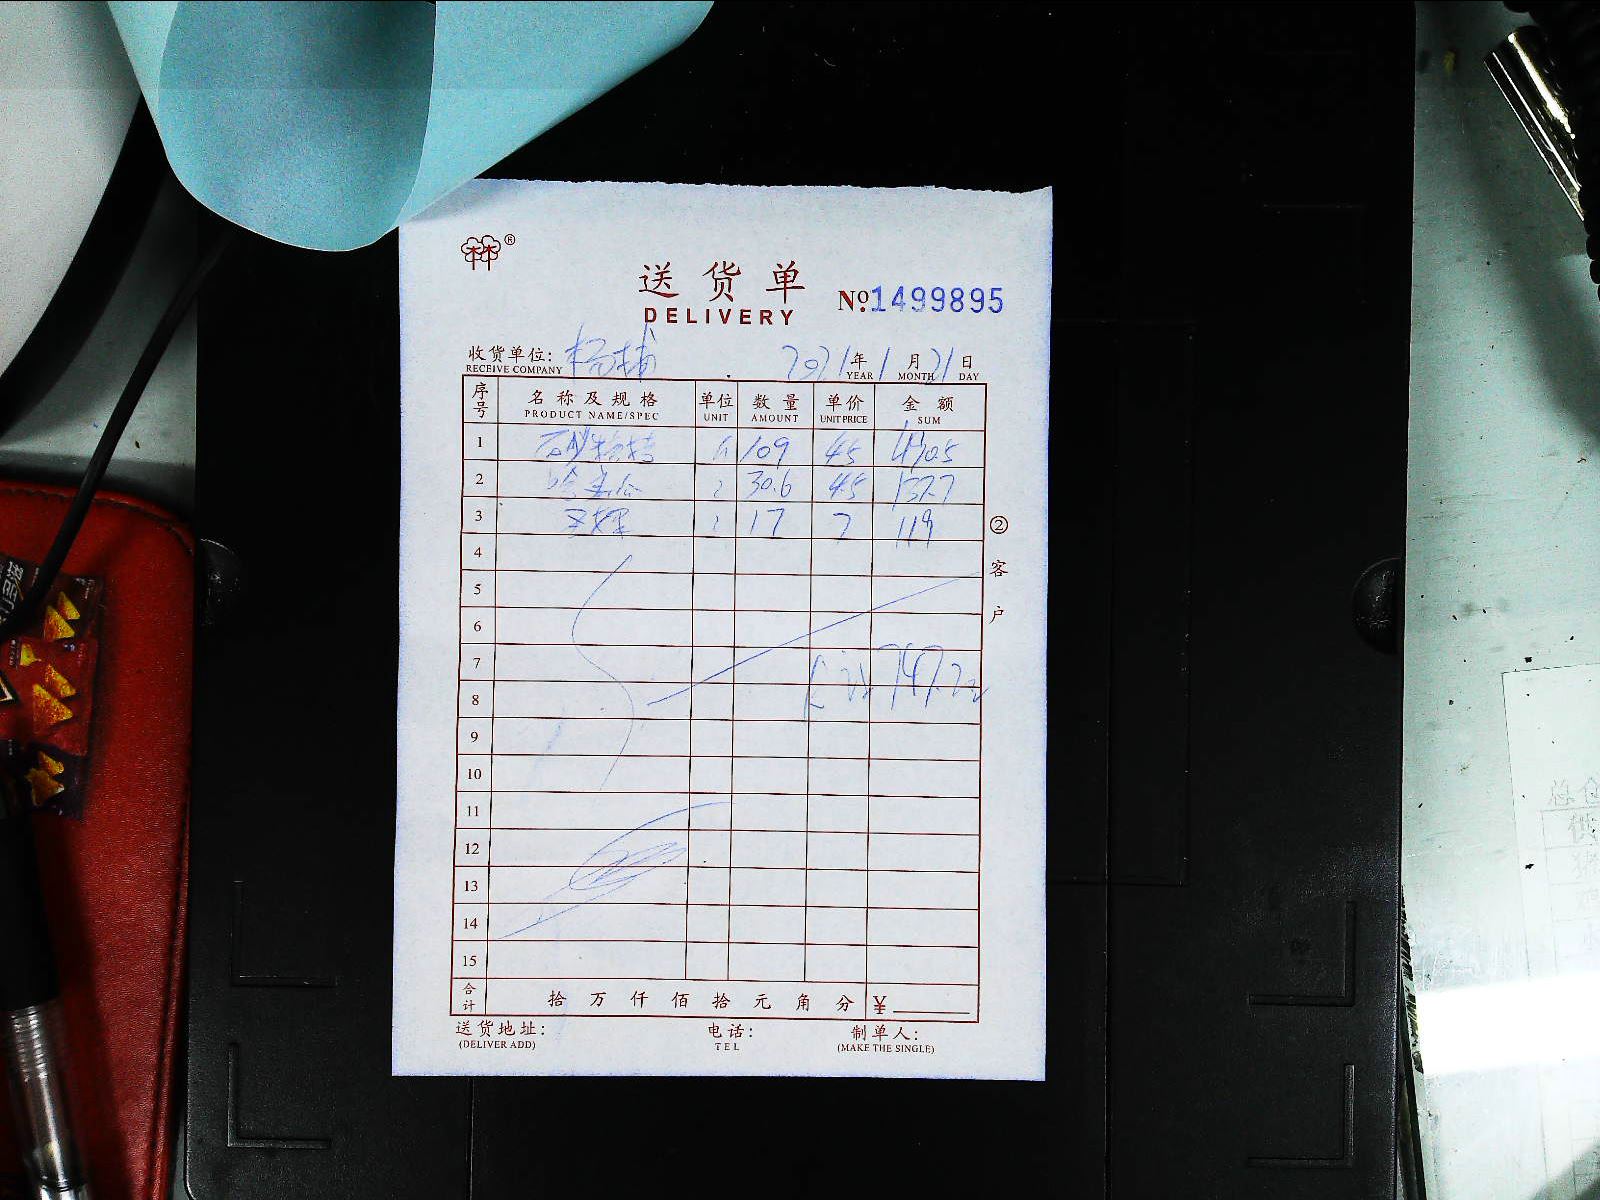 ®
送货单
DELIVERY
№ 1499895
收货单位: 杨埔 2021年1月21日
RECEIVE COMPANY YEAR MONTH DAY
序号 名称及规格 单位 数量 单价 金额
PRODUCT NAME/SPEC UNIT AMOUNT UNIT PRICE SUM
1 109 4.5 490.5
2 30.6 4.5 137.7
3 17 7 119
4
5
6
7 747.2
8
9
10
11
12
13
14
15
合计 拾 万 仟 佰 拾 元 角 分 ¥
②客户
送货地址: 电话: 制单人:
(DELIVER ADD) TEL (MAKE THE SINGLE)